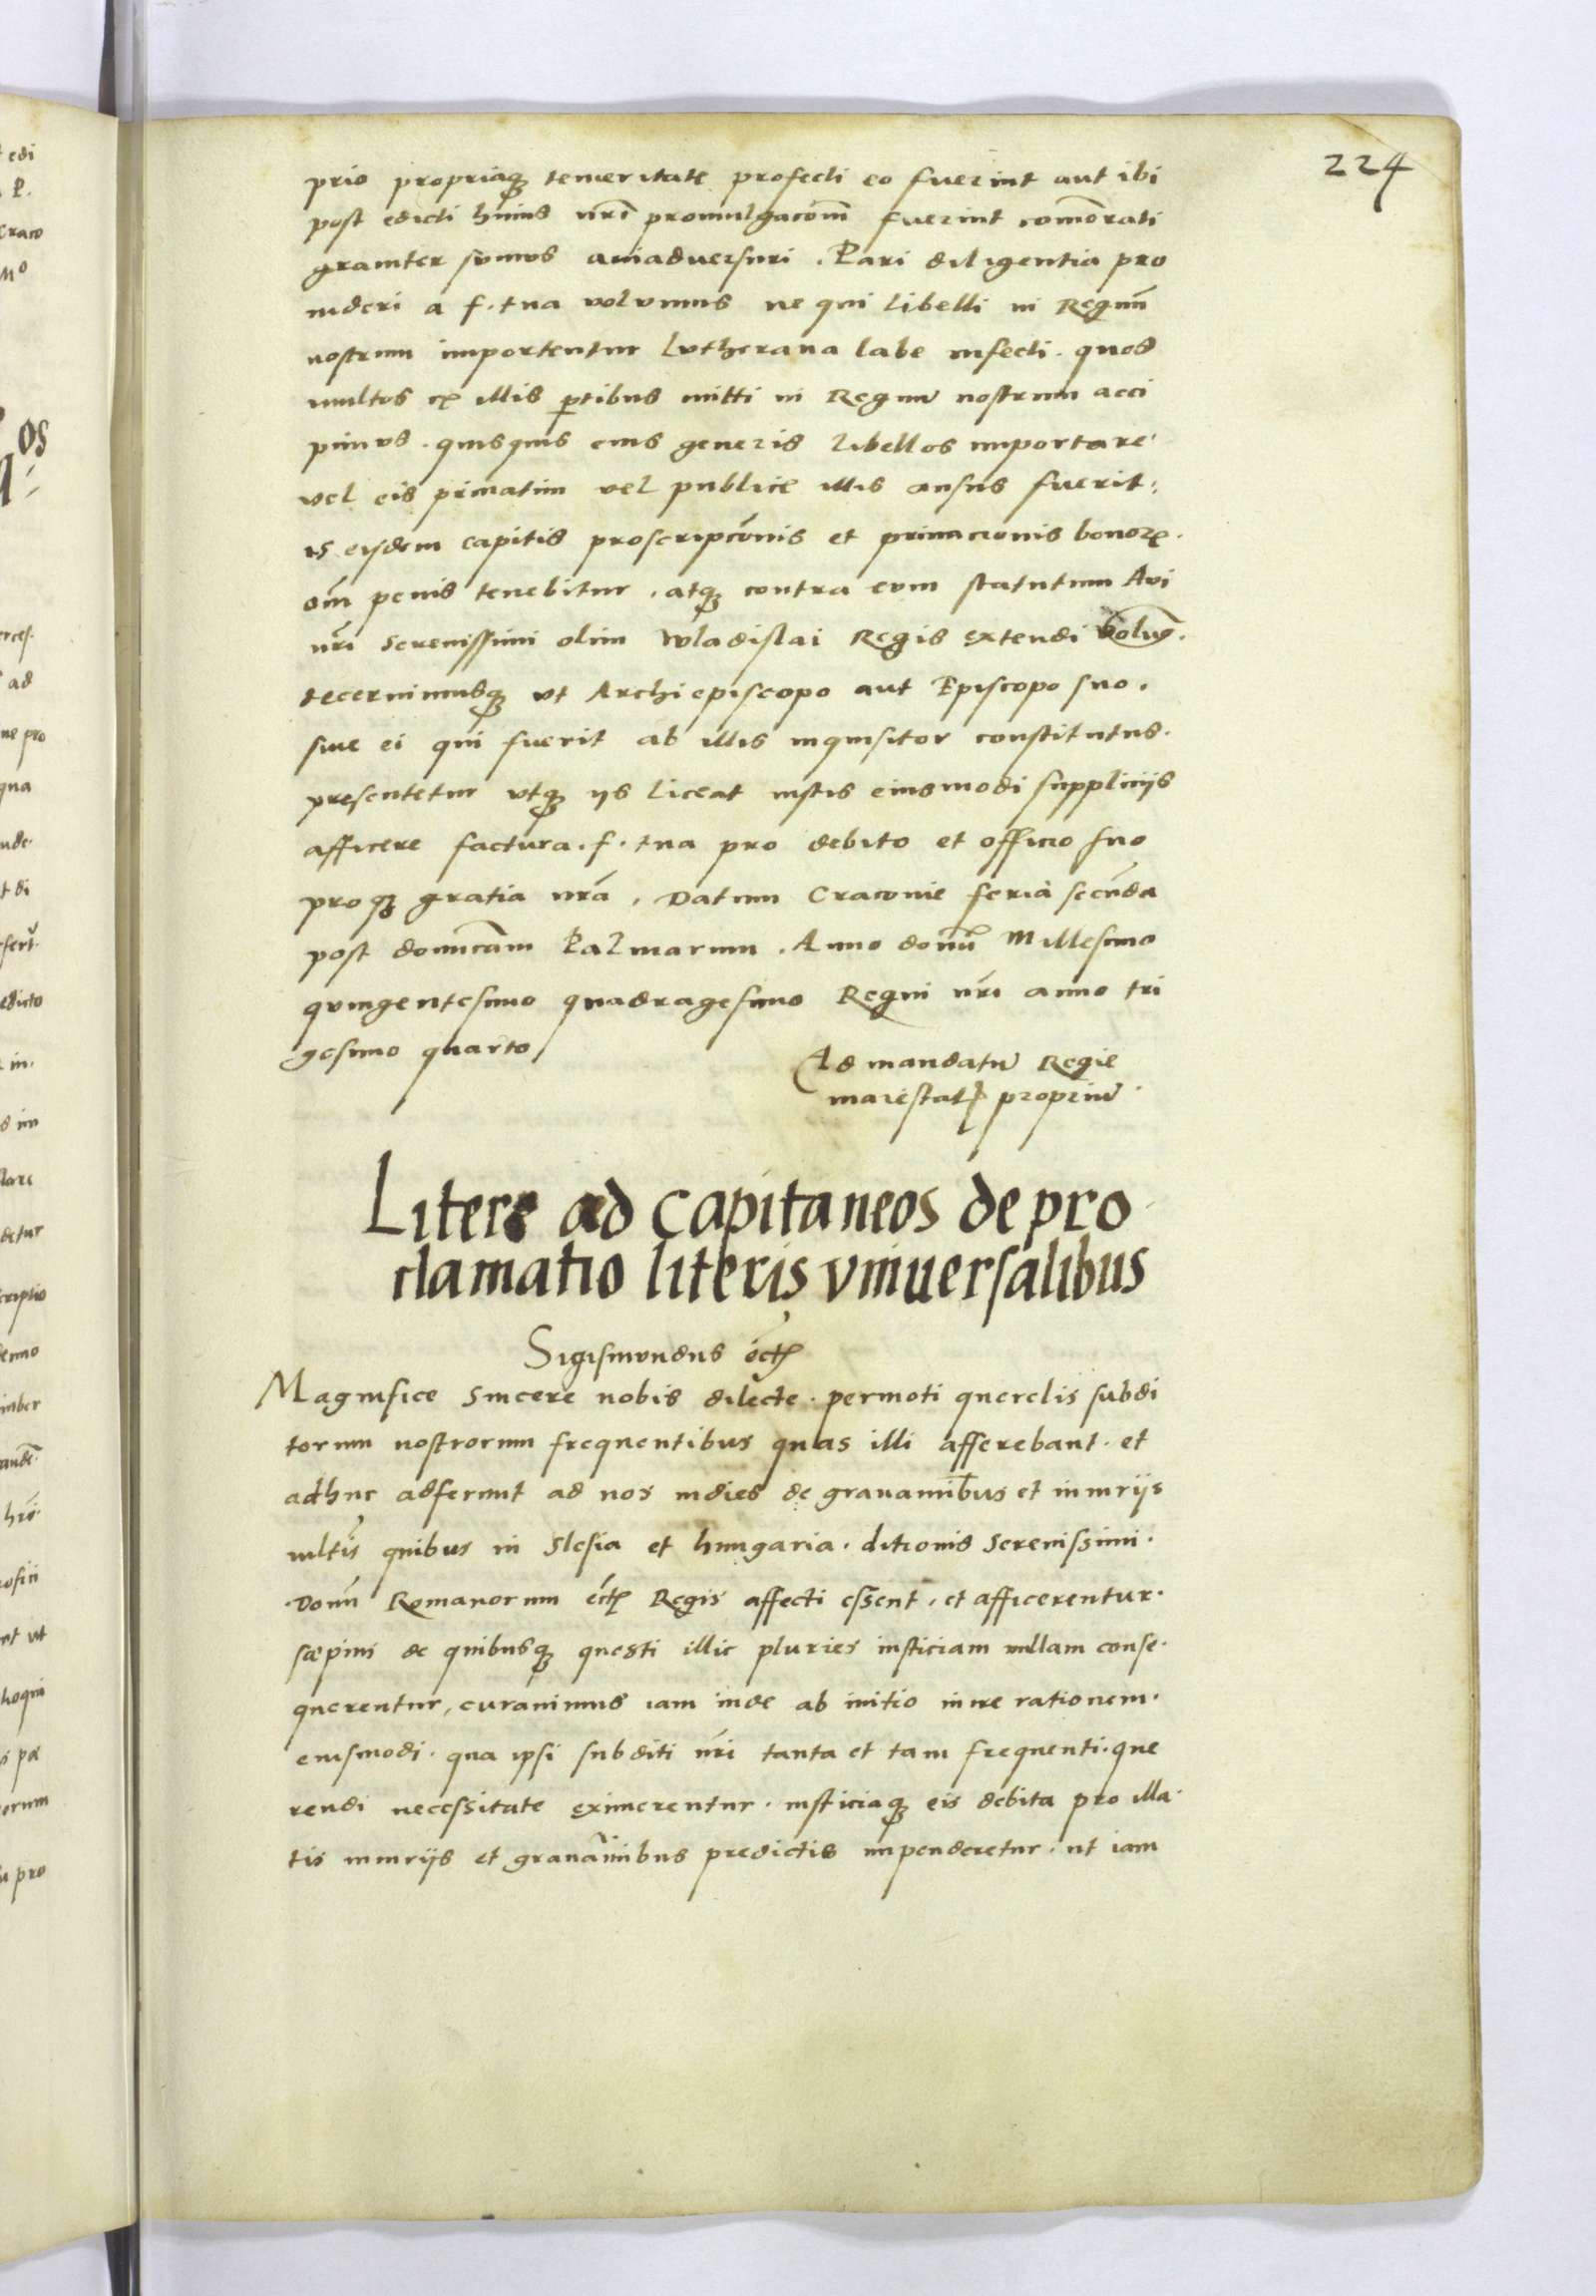 224
prio propriaq3 temeritate profecti eo fuerint aut ibi
post edicti huius nr̃i promulgacõm fuerint com̃orati
grauiter sumus aniaduersuri. Pari diligentia pro
uideri a f. tua volumus ne qui libelli in Regnũ
nostrum importentur lutherana labe infecti. quos
multos ex illis ꝑtibus mitti in Regnũ nostrum acci
pimus. quisquis eius generis libellos importare
vel eis priuatim vel publice illis ausus fuerit:
is eisdem capitis proscripcõnis et priuacionis bonoꝝ.
om̃ penis tenebitur. atq3 contra eum statutum Aui
nr̃i serenissimi olim wladislai Regis extendi volum9.
decernimusq3 vt Archiepiscopo aut Episcopo suo.
siue ei qui fuerit ab illis inquisitor constitutus.
presentetur vtq3 ijs liceat iustis eiusmodi supplicijs
afficere factura. f. tua pro debito et officio suo
proq3 gratia nr̃a. Datum Cracouie feria secũda
post dominicam Palmarum. Anno domĩ Millesimo
quingentesimo quadragesimo Regni nr̃i anno tri
gesimo quarto
Ad mandatũ Regie
maiestatꝭ propriũ.
Litere ad capitaneos de pro
clamatio literis vniuersalibus
Sigismundus ectꝭ
Magnifice sincere nobis dilecte. permoti querelis subdi
torum nostrorum frequentibus quas illi afferebant. et
adhuc adferunt ad nos indies de grauaminibus et iniurijs
multis quibus in Slesia et hungaria. ditionis serenissimi.
Domĩ Romanorum ectꝭ Regis affecti essent. et afficerentur.
sæpius de quibusq3 questi illic pluries iusticiam nullam conse.
querentur, curauimus iam inde ab initio inire rationem.
eiusmodi. qua ipsi subditi nr̃i tanta et tam frequenti. que
rendi necessitate eximerentur. iusticiaq3 eis debita pro illa.
tis iniurijs et grauaminibus predictis impenderetur. ut iam